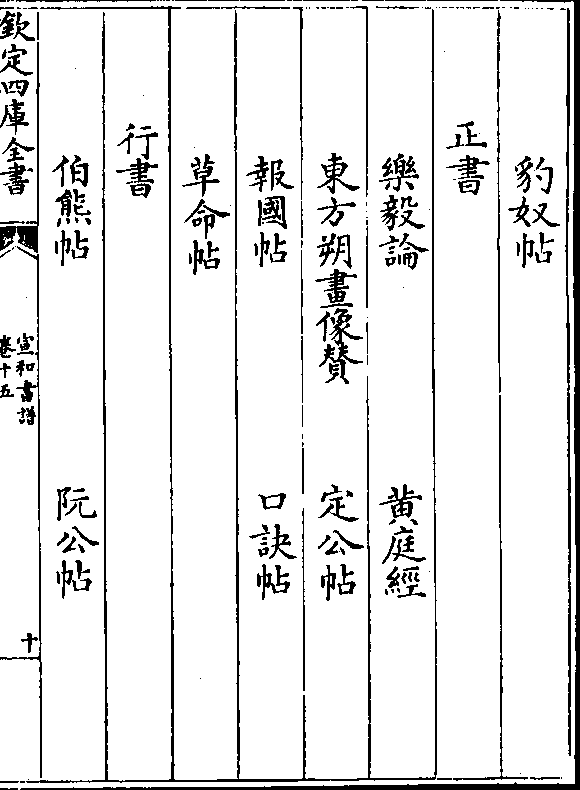 豹奴帖
正書
樂毅論　黄庭經
東方朔畫像贊　定公帖
報國帖　口訣帖
草命帖
行書
伯熊帖　阮公帖
欽定四庫全書
宣和書譜
卷十五
十